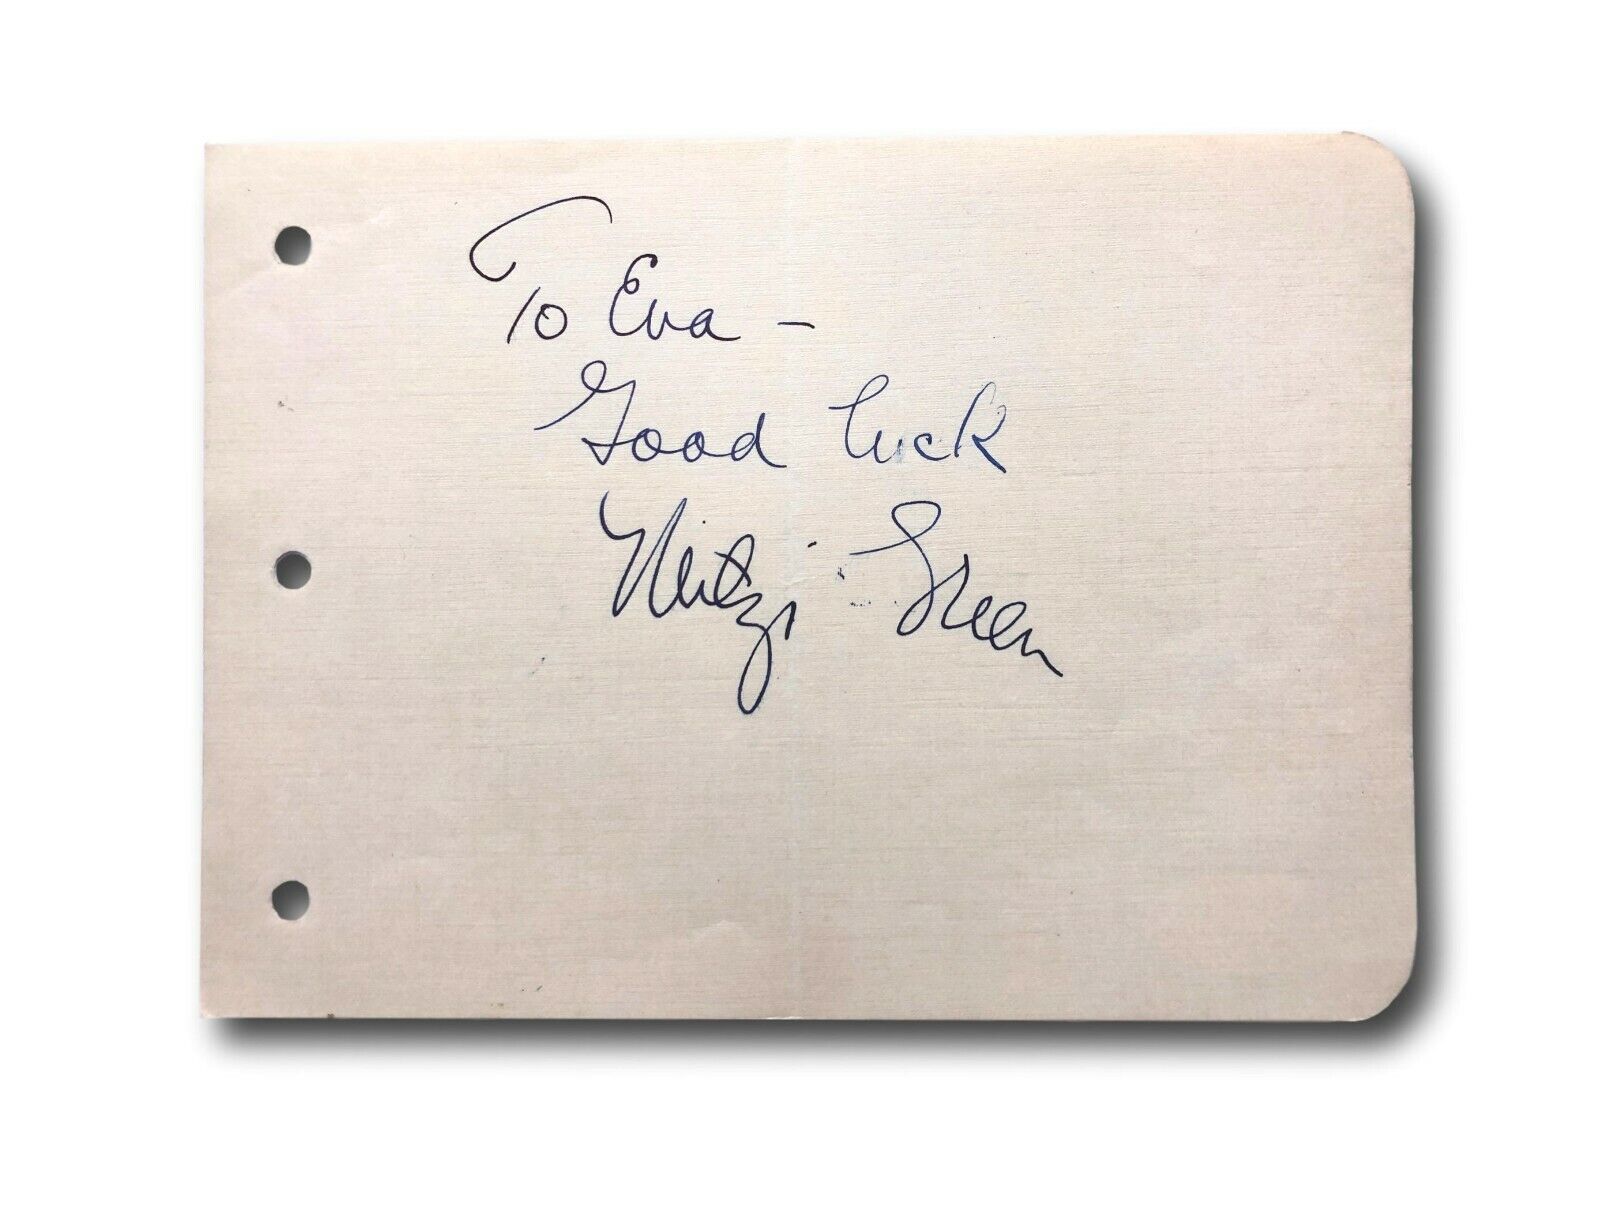 To Eva -
Good luck
Mitzi Green